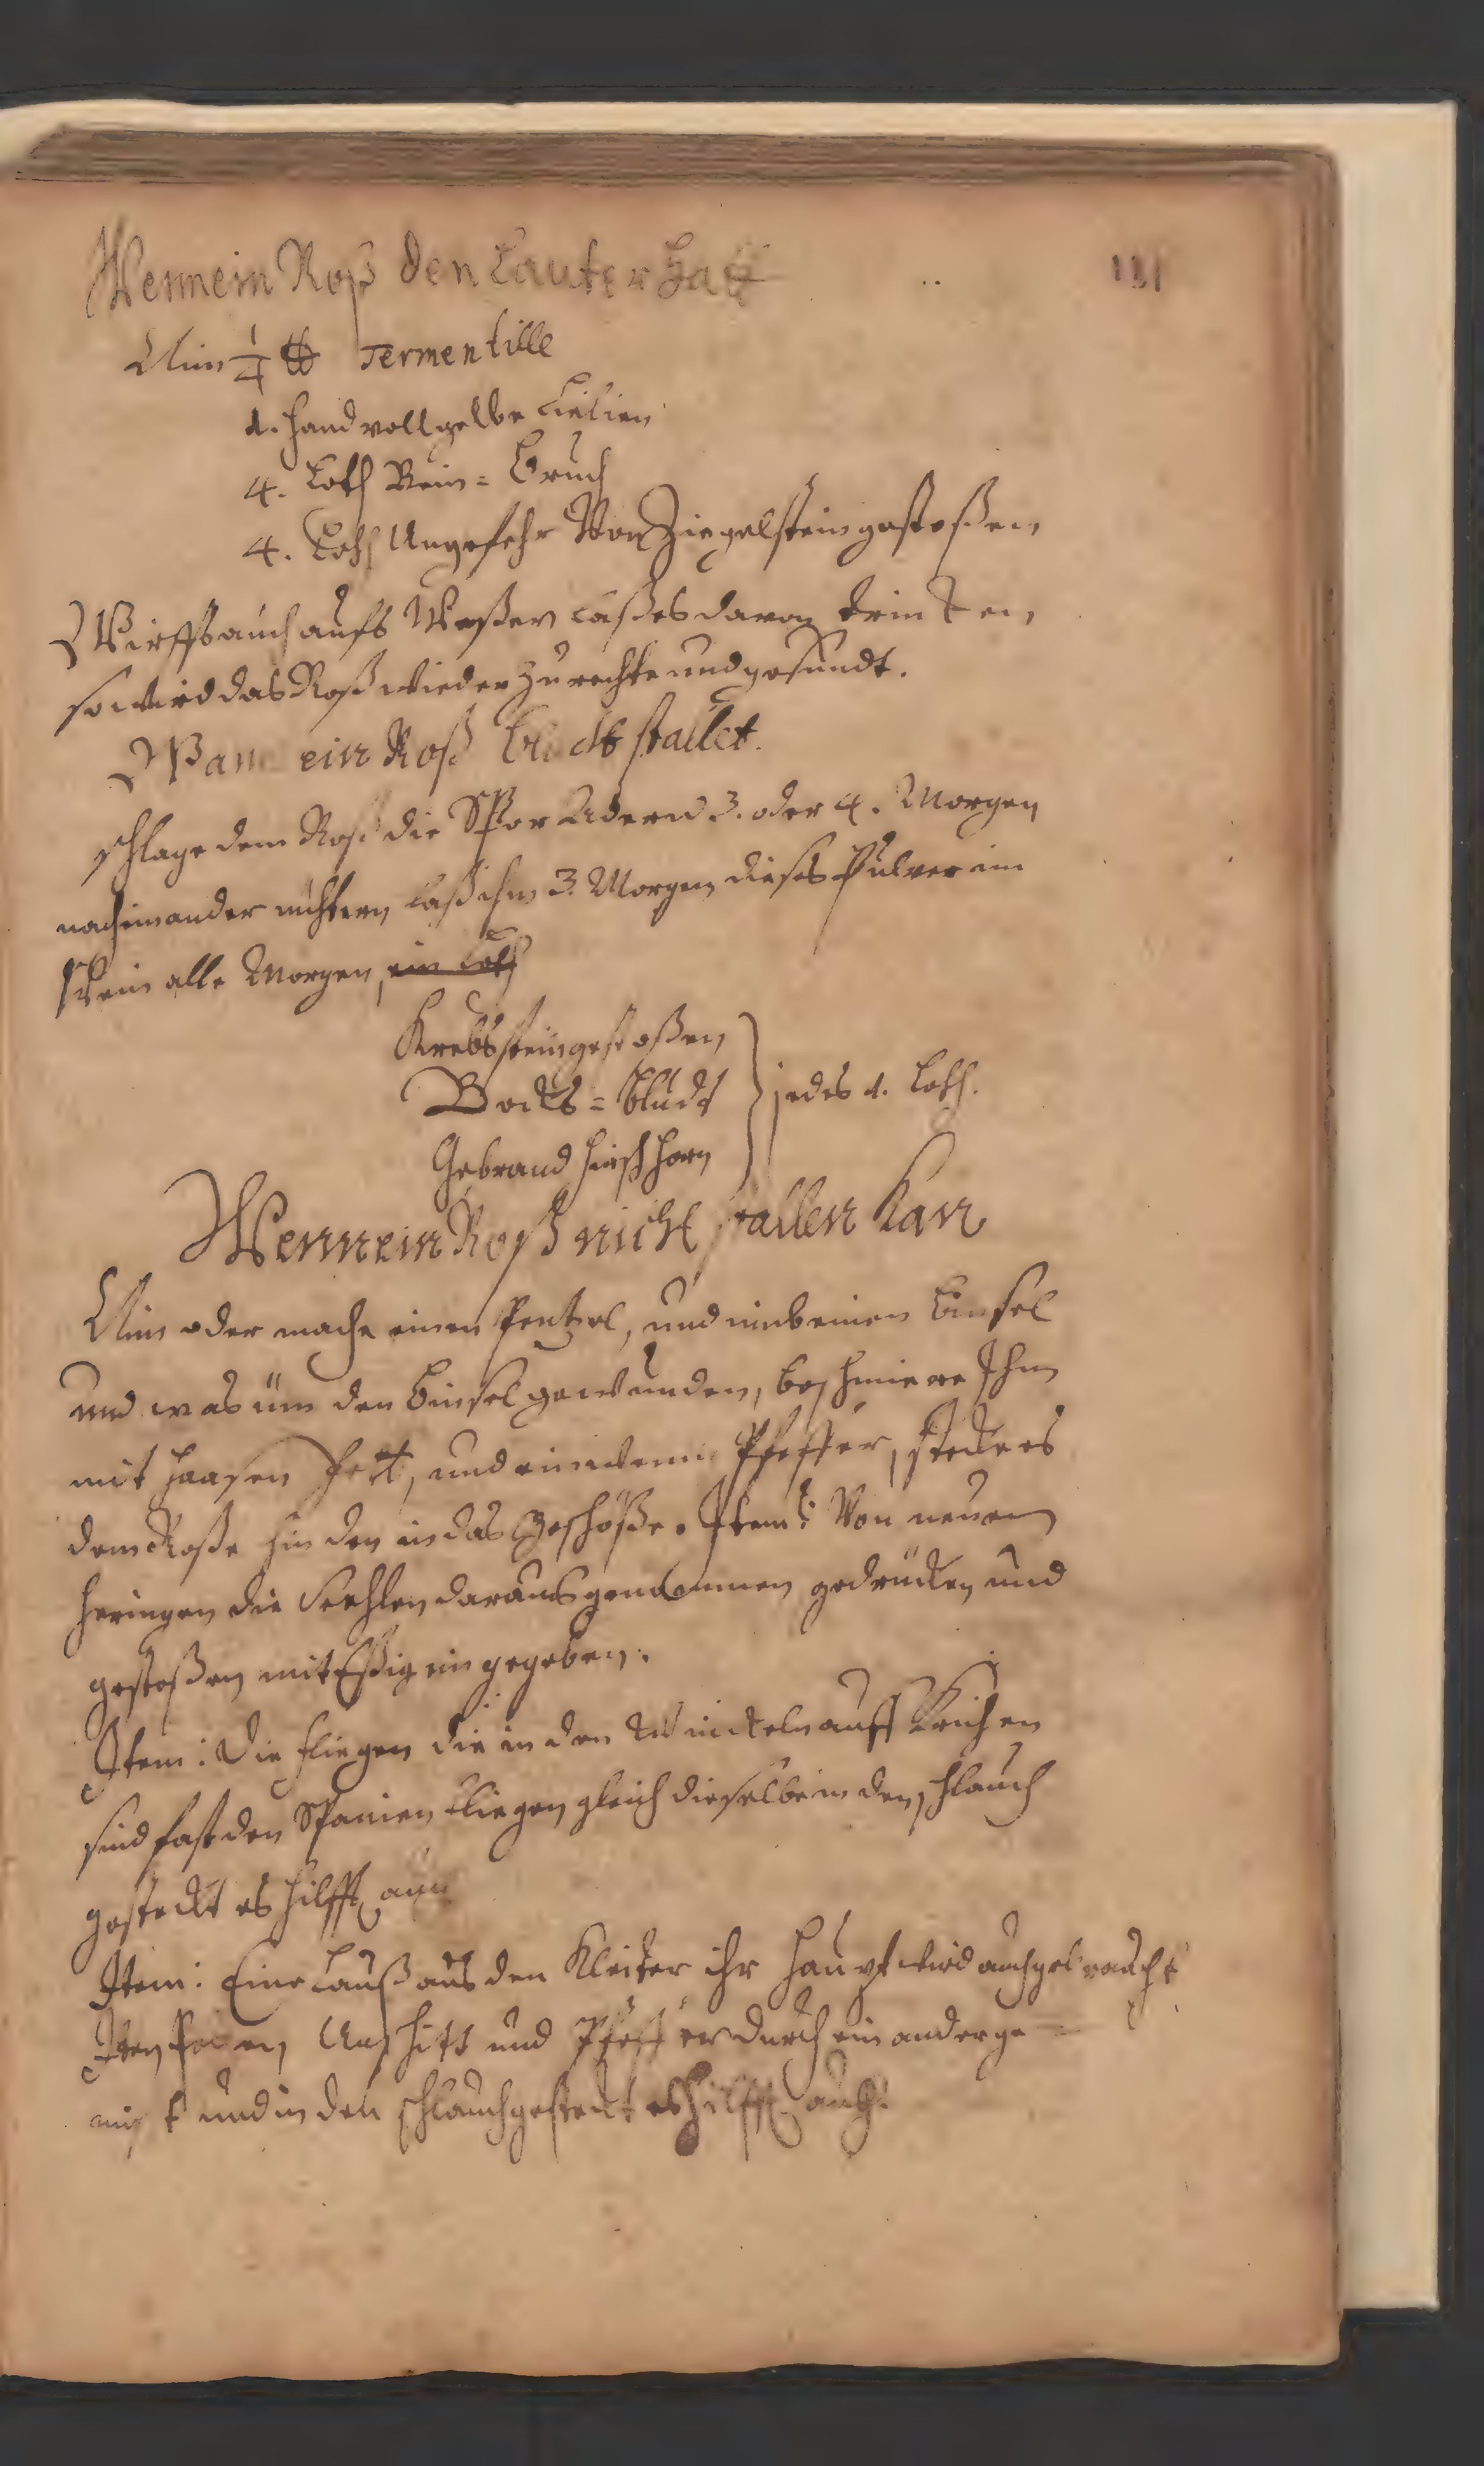 Wenn ein Roß den Lauter hatt
131
Nim 1/4 ℔ Termentille
1. Hand voll gelbe Lielien
4. Loth Bein=Bruch
4. Loth Ungefehr Von Ziegelstein gestoßen
Wirffs auch aufs Waßer laß es davon trincken,
so wird das Roß wieder zu rechte und gesundt.
Wan ein Roß Bludt stallet.
schlage dem Roß die Spor Adern 3. oder 4. Morgen
nacheinander nüchtern laß ihm 3. Morgen dieses Pulver im
Wein alle Morgen, ein Loth
Krebsstein gestoßen
Bocks=bludt } jedes 1. Loth.
Gebrand Hirschhorn
Wenn ein Roß nicht stallen Kan
Nim oder mache einen Pentzel, und nimb einen Binsel
und was üm den Binsel gewunden, beschmiere Ihm
mit Haasen Fett, und ein wenn Pfeffer, stecke es
dem Roße hinden in das Geschöße. Item: Von neuen
Heringen die Seehlen daraus genommen gedrücken und
gestoßen mit Eßig ein gegeben.
Item: Die fliegen die in den Winckeln auff Krichen
sind fast den Spanien fliegen gleich dieselbe in den schlauch
gesteckt es hilfft
Item: Eine Lauß aus den Kleider ihr Haupt wird auch gebraucht
Unschitt und Pfeffer durch ein ander ge=
mischt und in den schlauch gesteckt es hilfft auch.